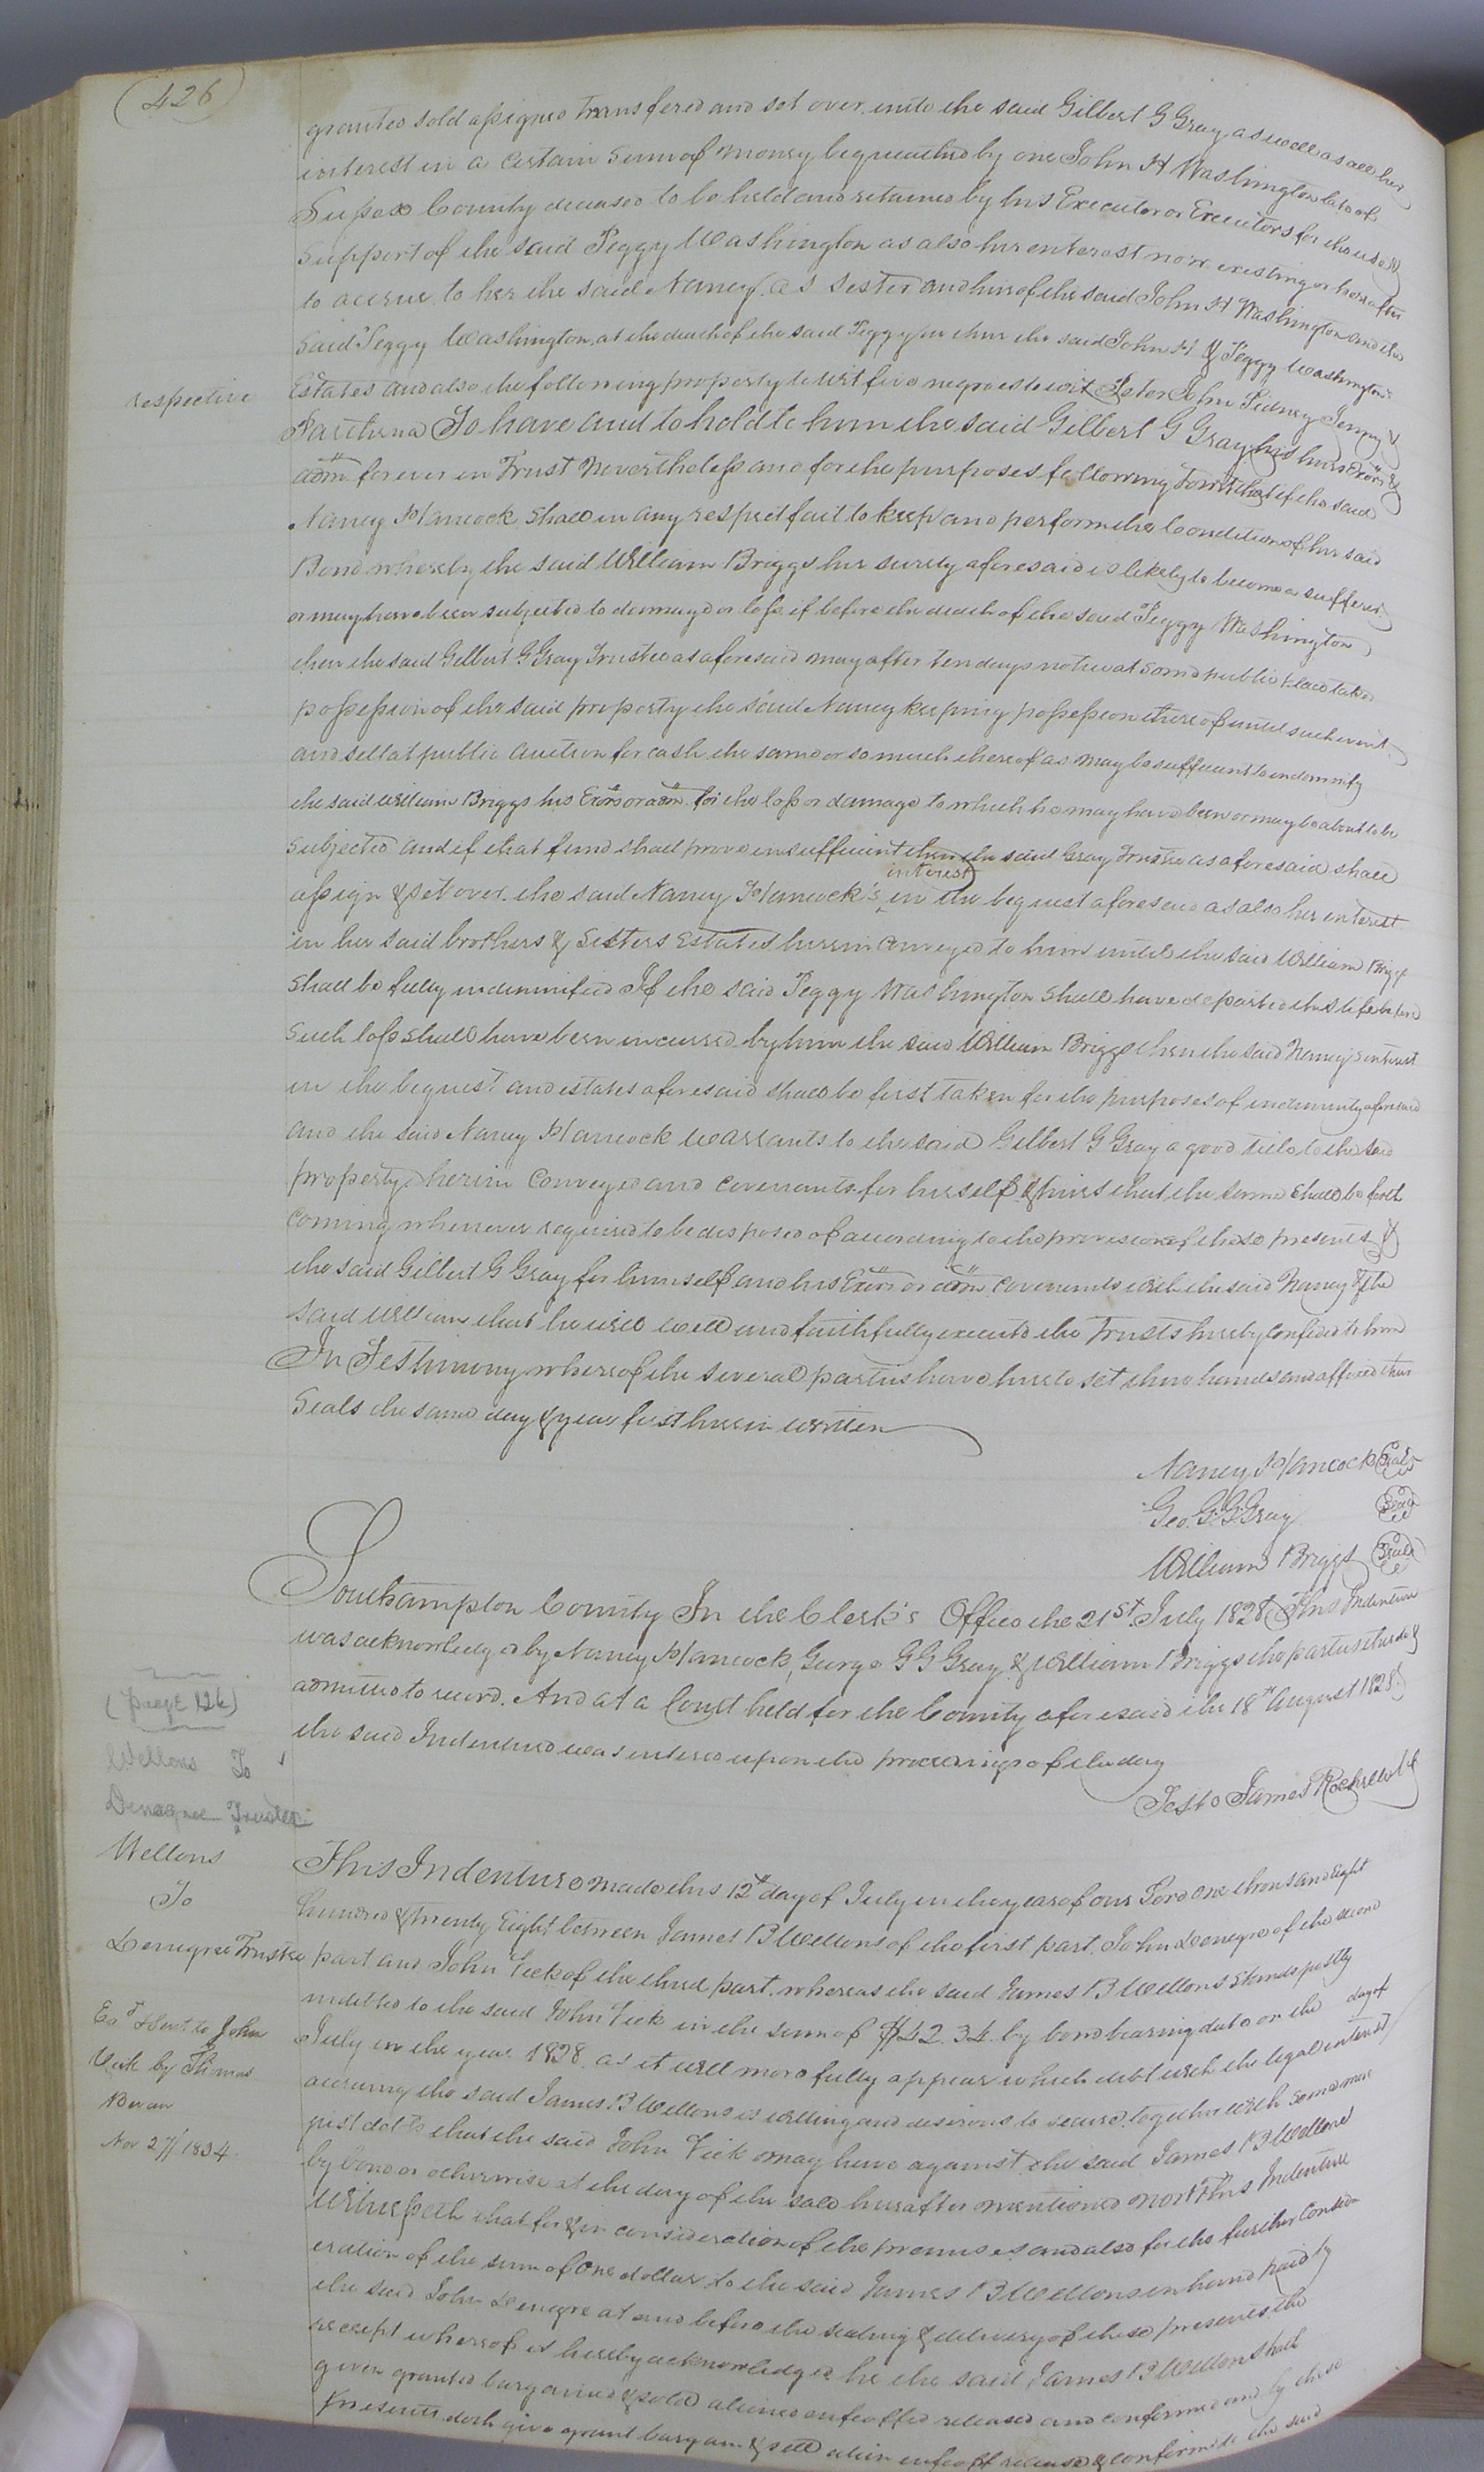 426
granted sold assigned transfered and set over unto the said Gilbert G Gray as well as all her
interest in a certain sum of money bequeathed by one John H Washington late of
Sussex County deceased to be held and retained by his Executor or Executors for the use &
support of the said Peggy Washington as also her enterest now existing or hereafter
to accrue to her the said Nancy as sester and heir of the said John H Washington and the
said Peggy Washington at the death of the said Peggy in thur the said John H & Peggy Washington's
respective
Estates and also the following property to wit five negroes to wit Peter John Sidney Jenny &
Parthena To have and to hold to him the said Gilbert G Gray his heirs Exors &
adm forever in Trust nevertheless and for the purposes following Towit that if the said
Nancy Hancock shall in any respect fail to keep and perform the Condition of her said
Bond whereby the said William Briggs her surety aforesaid is likely to become a sufferer
or may have been subjected to damage or loss if before the death of the said Peggy Washington
then the said Gilbert G Gray Trustee as aforesaid may after ten days notice at some public place take
possession of the said property the said Nancy keeping possession thereof until such event
and sell at public auction for cash the same or so much thereof as may be sufficient to indemnify
the said William Briggs his Exors or adm for the loss or damage to which he may have been or may be about to be
subjected and if that fund shall prove insufficient then the said Gray Trustee as aforesaid shall
interest
assign & set over the said Nancy Hancock's in the bequest aforesaid as also her interest
in her said brothers & sisters Estates herein conveyed to him until the said William Briggs
shall be fully indemnified If the said Peggy Washington shall have departed this life before
such loss shall have been incurred by him the said William Briggs then the said Nancy's interest
in the bequest and estates aforesaid shall be first taken for the purposes of indemnity aforesaid
and the said Nancy Hancock warrants to the said Gilbert G Gray a good title to the said
property herein conveyed and covenants for herself & heirs that the same shall be forth
coming whenever required to be disposed of according to the provisions of these presents &
the said Gilbert G Gray for himself and his Exors or adm covenants with the said Nancy & the
said William that he will well and faithfully execute the trusts hereby confided to him
In Testimony whereof the several parties have hereto set their hands and affixed their
Seals the same day & year first herein written
Nancy Hancock Seal
Geo. G. G. Gray Seal
William Briggs Seal
Southampton County In the Clerk's Office the 21st July 1828 This Indenture
was acknowledged by Nancy Hancock, George G G Gray & William Briggs the parties thereto &
admitted to record. And at a Court held for the County aforesaid the 18th August 1828
the said Indenture was entered upon the proceedings of the day
Teste James Rochelle
(page 126)
Wellons To
Denegree Trustee
Wellons
To
Denegree Trustee
Exd & sent to John
Vick by Thomas
Nov 27/1834
This Indenture made this 12th day of July in the year of our Lord one thousand Eight
hundred & twenty Eight between James B Wellons of the first part, John Denegre of the second
part and John Vick of the third part. whereas the said James B Wellons stands justly
indebted to the said John Vick in the sum of $42.34 by bond bearing date on the day of
July in the year 1828 as it will more fully appear which debt with the legal interest
accruing the said James B Wellons is willing and desirous to secure together with some more
just debts that the said John Vick may have against the said James B Wellons
by bond or otherwise at the day of the sale hereafter mentioned now This Indenture
Witnesseth that for & in consideration of the premises and also for the further Consid
eration of the sum of one dollar to the said James B Wellons in hand paid by
the said John Denegre at and before the sealing & delivery of these presents the
receipt whereof is hereby acknowledged he the said James B Wellons hath
given granted bargained & sold aliened enfeoffed released and confirmed and by these
presents doth give grant bargain & sell alien enfeoff release & confirm to the said